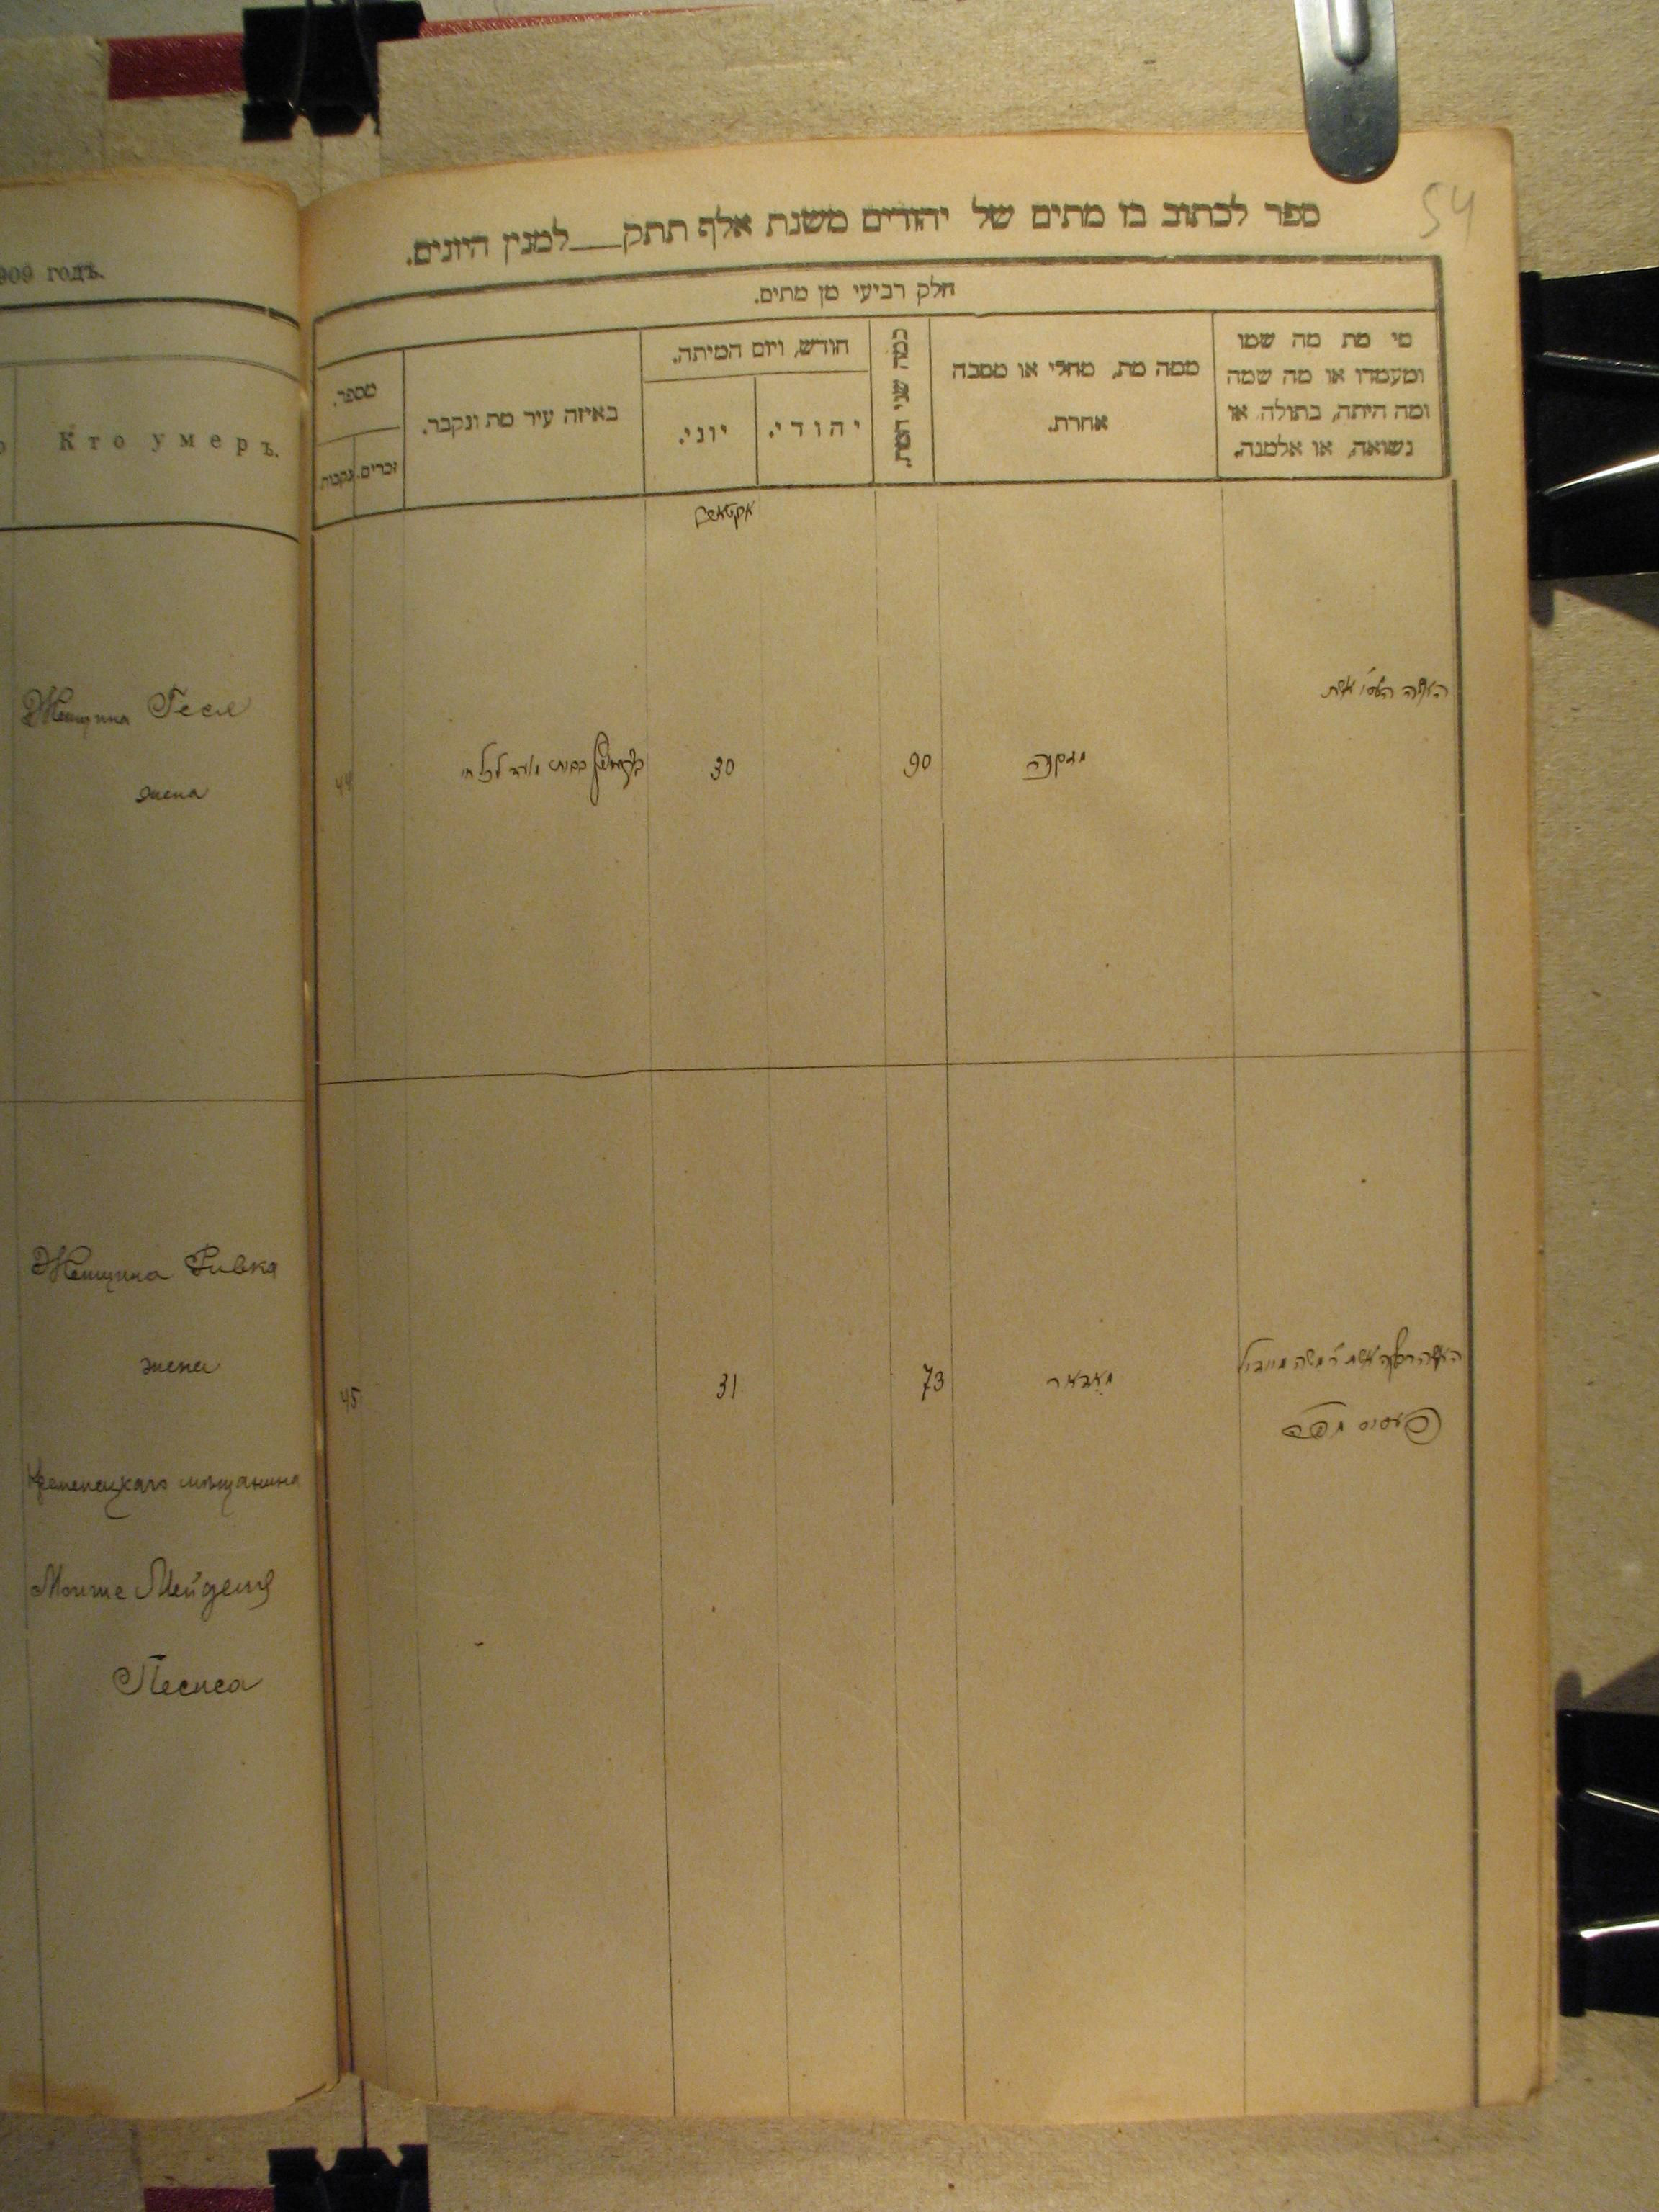 909 годъ.
Кто умеръ.
Женщина Геся
жена
Женщина Ривка
жена
Кременецкаго мѣщанина
Мошке Мейдеша
Песиса
54
ספר לכתוב בו מתים של יהודים משנת אלף תתק___למנין היונים.
חלק רביעי מן מתים.
מי מת מה שמו
ומעמדו או מה שמה
ומה היתה, בתולה או
נשואה, או אלמנה.
ממה מת, מחלי או מסבה
אחרת.
כמה שני המת.
חודש, ויום המיתה.
יהודי.
יוני.
באיזה עיר מת ונקבר.
מספר.
זכרים.
נקבות.
אקטאבר
האשה העסי אשת
מזקנה
90
30
44
האשה רבקה אשת ר' משה
פעסיס
73
31
45